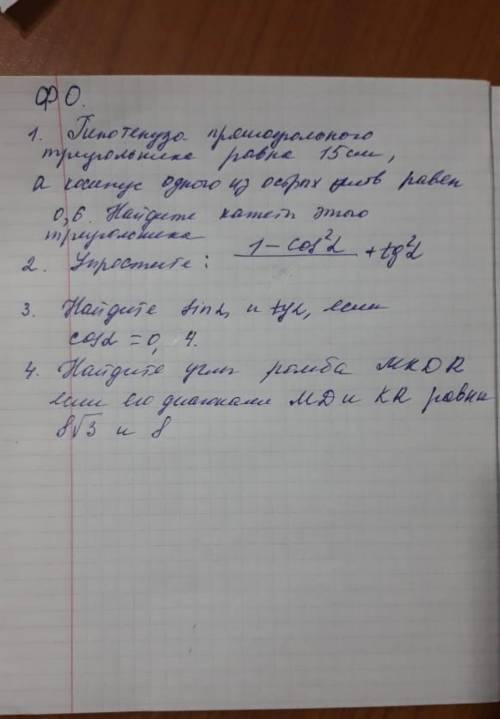 ФО.
1. Гипотенуза прямоугольного
треугольника равна 15см,
а косинус одного из острых углов равен
0,6. Найдите катеты этого
треугольника
2. Упростите: 1-cos²α + tg²α
3. Найдите sinα, и tgα, если
cosα = 0, 4.
4. Найдите углы ромба MKDR
если его диагонали MD и KR равны
8√3 и 8